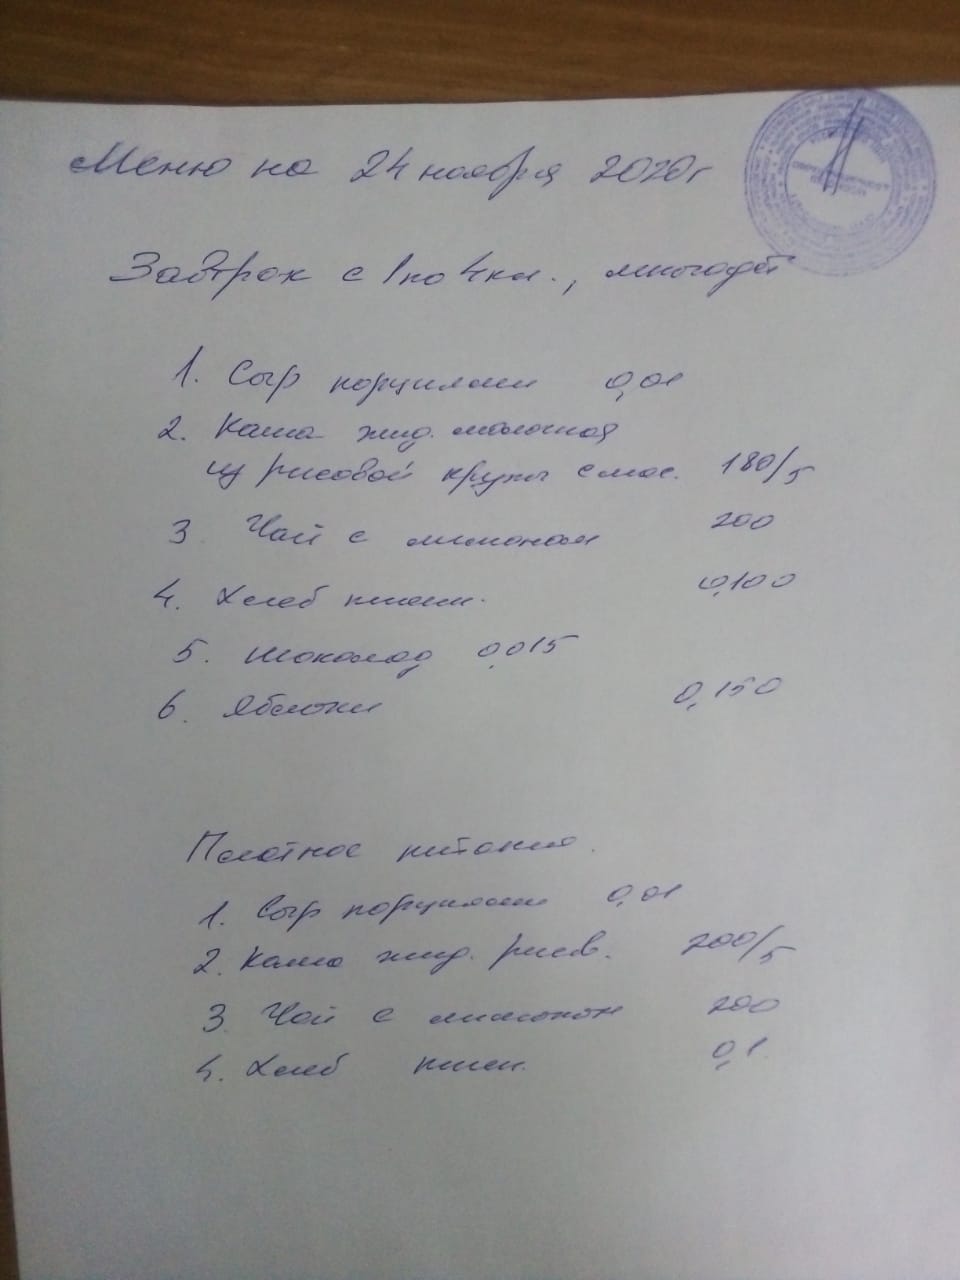 Меню на 24 ноября 2020г
Завтрак с 1 по 4 кл., многодет
1. Сыр порциями 0,01
2. Каша жид. молочная
из рисовой крупы с мас. 180/5
3 Чай с лимоном 200
4. Хлеб пшен. 0,100
5. Шоколад 0,015
6. Яблоки 0,150
Платное питание.
1. Сыр порциями 0,01
2. Каша жид. рисов. 200/5
3 Чай с лимоном 200
4. Хлеб пшен. 0,1